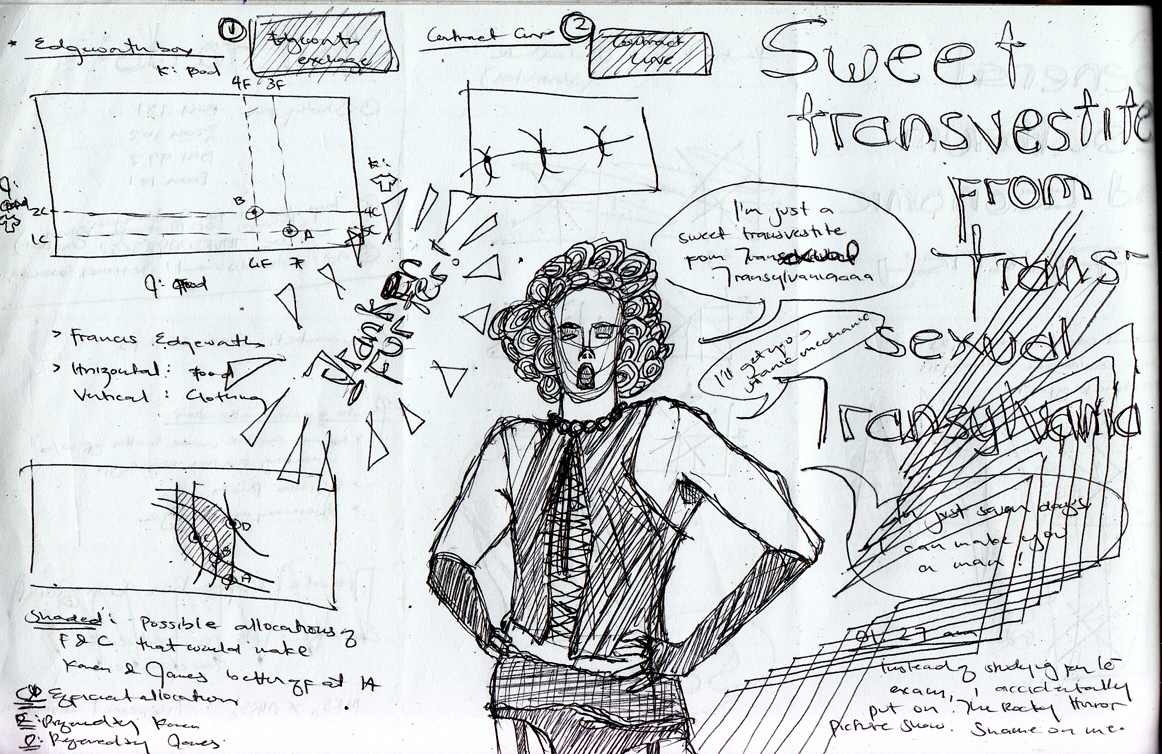 * Edgeworth box
① Edgeworth
exchange
K: Food
4F 3F
2C
1C
B
A
4C
5C
K:
J:
6F 7F
J: Food
> Francis Edgeworth
> Horizontal: Food
Vertical: Clothing
D
C
B
A
Shaded: Possible allocations of
F & C that would make
Karen & James better off at A
allocation
Karen
James.
Contract Curve ②
Contract
Curve
I'm just a
sweet transvestite
from
Transylvaniaaaa
I'll get you a
mechanic
In just seven days,
I can make you
a man!
Sweet
transvestite
From
Trans-
sexual
Transylvania
01.27 am
Instead of studying for le
exam, I accidentally
put on The Rocky Horror
Picture Show. Shame on me.